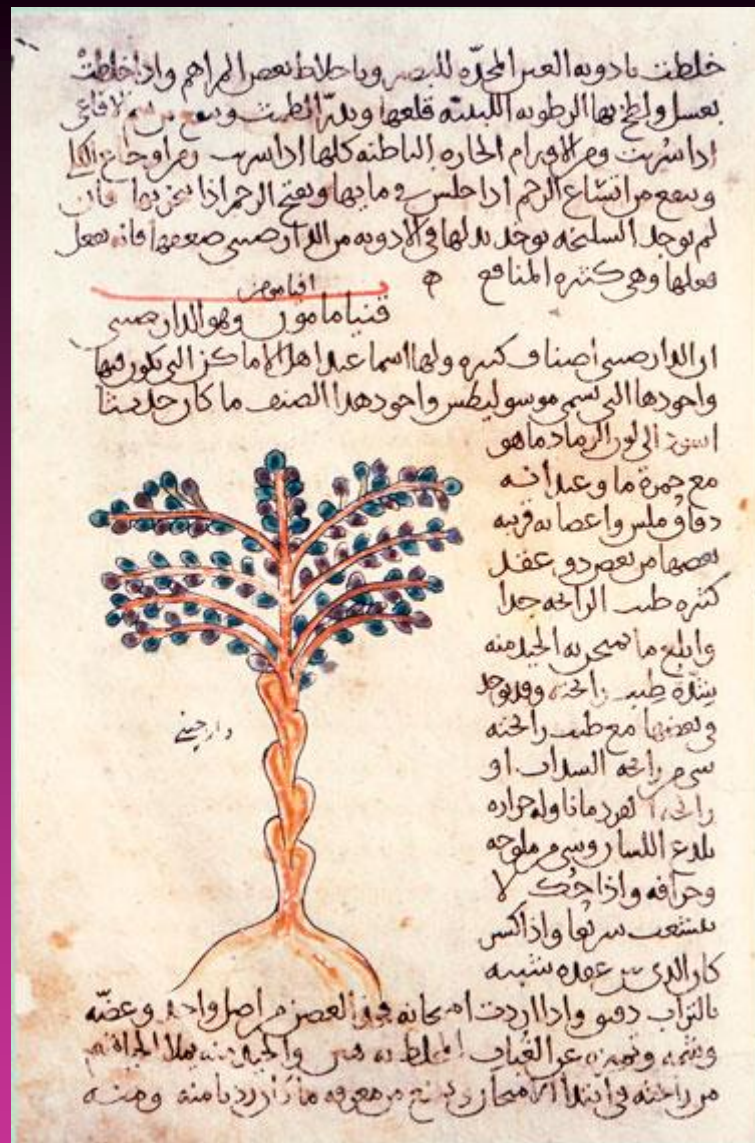 خلطت بادويه العين المحدّه للبصر وباخلاط بعض المراهم واذا خلطت
بعسل ولطخ بها الرطوبه اللبنيّه قلعها ويدرّ الطمث وينفع من سم الافاعى
اذا شربت ومن الاورام الحاره الباطنه كلها اذا شربت ومن اوجاع الكلى
وينفع من اتساع الرحم اذا جلس فى مايها ويفتح الرحم اذا بخر بها فان
لم توجد السليخه يوخذ بدلها فى الادويه من الدارصينى ضعفها فانه يفعل
فعلها وهى كثيره المنافع
قنيامامون وهو الدارصينى
ان الدارصينى اصناف كثيره ولها اسما عند اهل الاماكن التى تكون فيها
واجودها التى تسمى موسوليطس واجود هذا الصنف ما كان حديثا
اسود الى لون الرماد ما هو
مع حمرة ما وعيدانه
دقاق ملس واغصانه قريبه
بعضها من بعض ذو عقد
كثره طيب الرائحه جدا
وابلغ ما يمتحن به الجيد منه
شدّة طيب رائحته وقد يوجد
فى بعضها مع طيب رائحته
شى من رائحه السداب او
رائحه القردمانا وله حراره
يلدع اللسان وشى من ملوحه
وحرافه واذا حك لا
يتشعب سريعا واذا كسر
كان الذى بين عقده شبيه
بالتراب دقيق واذا اردت امتحانه فخذ الغصن من اصل واحد
من رائحته فى ابتدا الامتحان ويمنع من معرفه ما كان ردیا منه ومنه
دارچينى